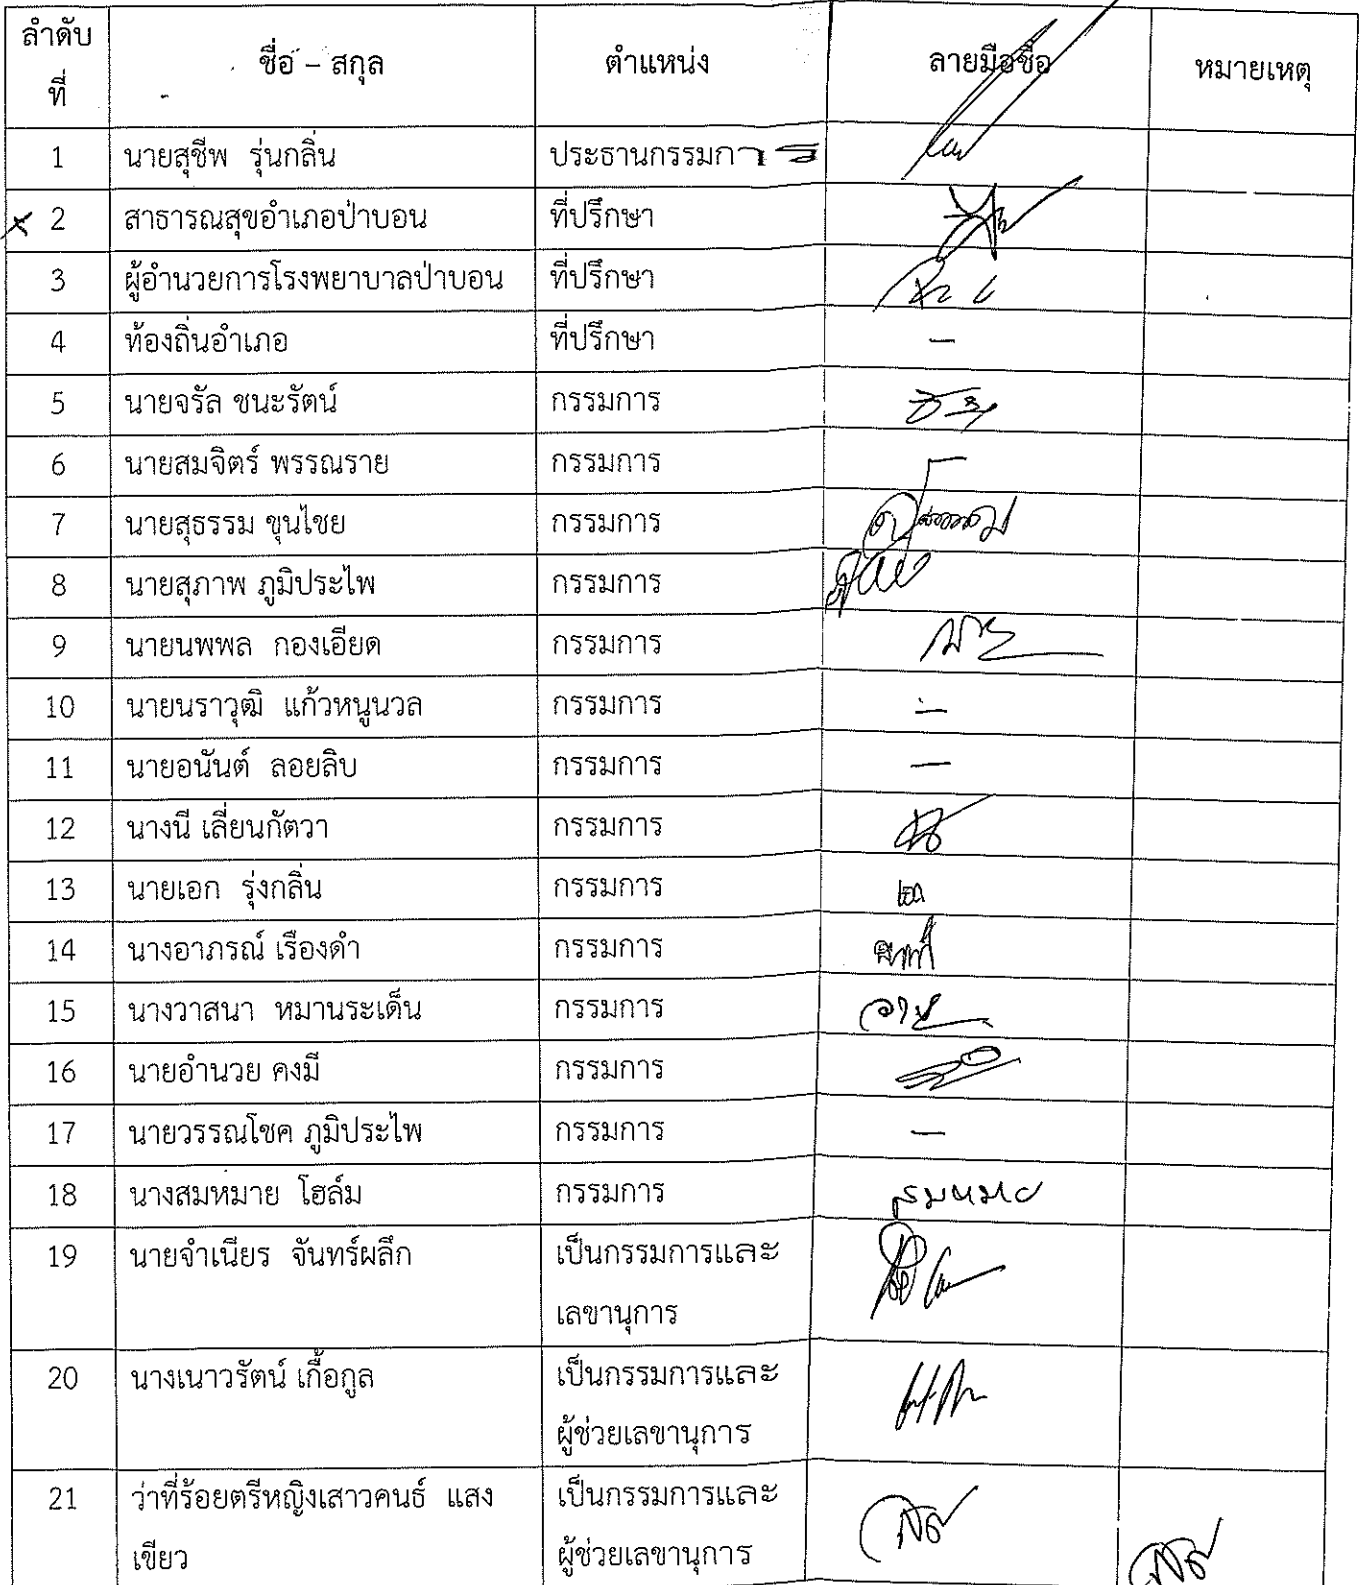 ลำดับ
ที่
ชื่อ – สกุล
ตำแหน่ง
ลายมือชื่อ
หมายเหตุ
1 นายสุชีพ รุ่นกลิ่น ประธานกรรมการ
× 2 สาธารณสุขอำเภอป่าบอน ที่ปรึกษา
3 ผู้อำนวยการโรงพยาบาลป่าบอน ที่ปรึกษา
4 ท้องถิ่นอำเภอ ที่ปรึกษา –
5 นายจรัล ชนะรัตน์ กรรมการ
6 นายสมจิตร์ พรรณราย กรรมการ
7 นายสุธรรม ขุนไชย กรรมการ
8 นายสุภาพ ภูมิประไพ กรรมการ
9 นายนพพล กองเอียด กรรมการ
10 นายนราวุฒิ แก้วหนูนวล กรรมการ –
11 นายอนันต์ ลอยลิบ กรรมการ –
12 นางนี เลี่ยนกัตวา กรรมการ
13 นายเอก รุ่งกลิ่น กรรมการ เอก
14 นางอาภรณ์ เรืองดำ กรรมการ
15 นางวาสนา หมานระเด็น กรรมการ
16 นายอำนวย คงมี กรรมการ
17 นายวรรณโชค ภูมิประไพ กรรมการ –
18 นางสมหมาย โฮล์ม กรรมการ สมหมาย
19 นายจำเนียร จันทร์ผลึก เป็นกรรมการและ
เลขานุการ
20 นางเนาวรัตน์ เกื้อกูล เป็นกรรมการและ
ผู้ช่วยเลขานุการ
21 ว่าที่ร้อยตรีหญิงเสาวคนธ์ แสง เป็นกรรมการและ
เขียว ผู้ช่วยเลขานุการ